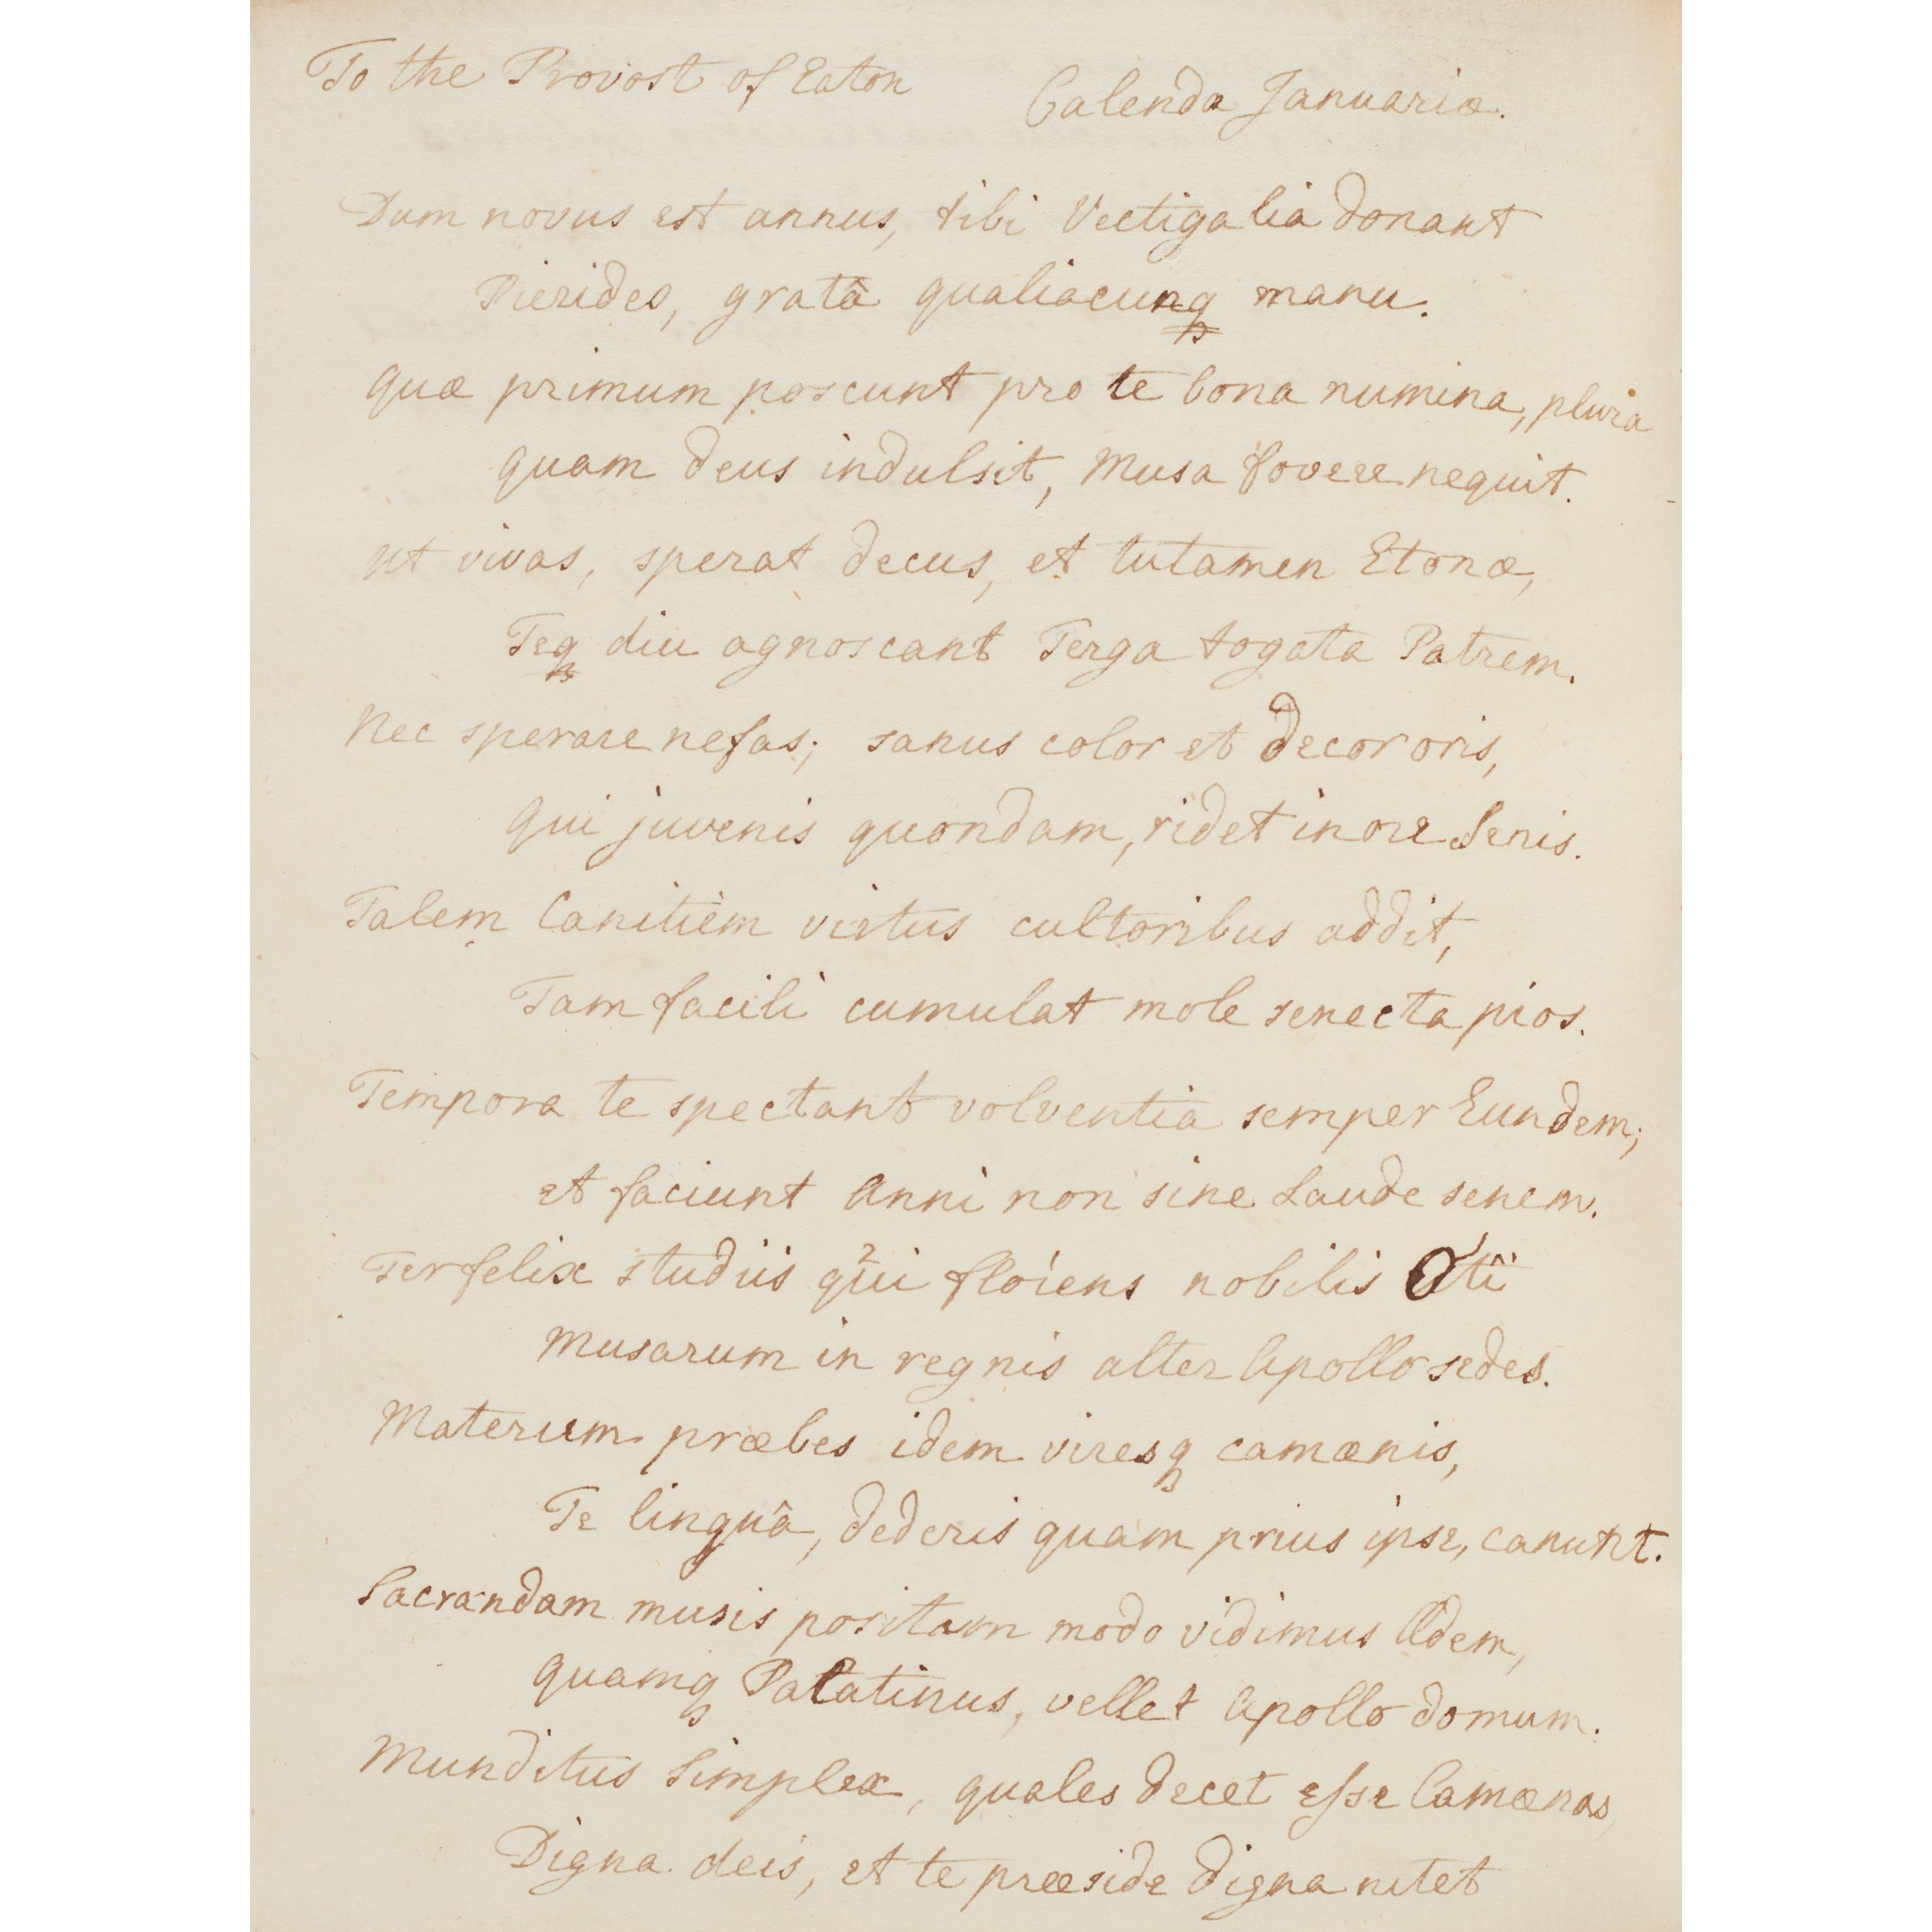 To the Provost of Eaton
Calendæ Januariæ.
Dum novus est annus, tibi Vectigalia donant
Pierides, gratâ qualiacunq manu.
Quæ primum poscunt pro te bona numina, plura
quam deus indulsit, Musa fovere nequit.
Ut vivas, sperat decus, et tutamen Etonæ,
Teq diu agnoscant Terga togata Patrem.
Nec sperare nefas; sanus color et decor oris,
Qui juvenis quondam, ridet in ore Senis.
Talem Canitiem virtus cultoribus addit,
Tam facili cumulat mole senecta pios.
Tempora te spectant volventia semper Eundem;
et faciunt Anni non sine Laude senem.
Ter felix studiis qui florens nobilis Oti
Musarum in regnis alter Apollo sedes.
Materium præbes idem viresq camænis,
Te linguâ, dederis quam prius ipse, canunt.
Sacrandam musis positam modo vidimus Ædem,
Quamq Palatinus, vellet Apollo domum.
Munditus Simplex, quales decet esse Camænas,
Digna deis, et te præside digna nitet